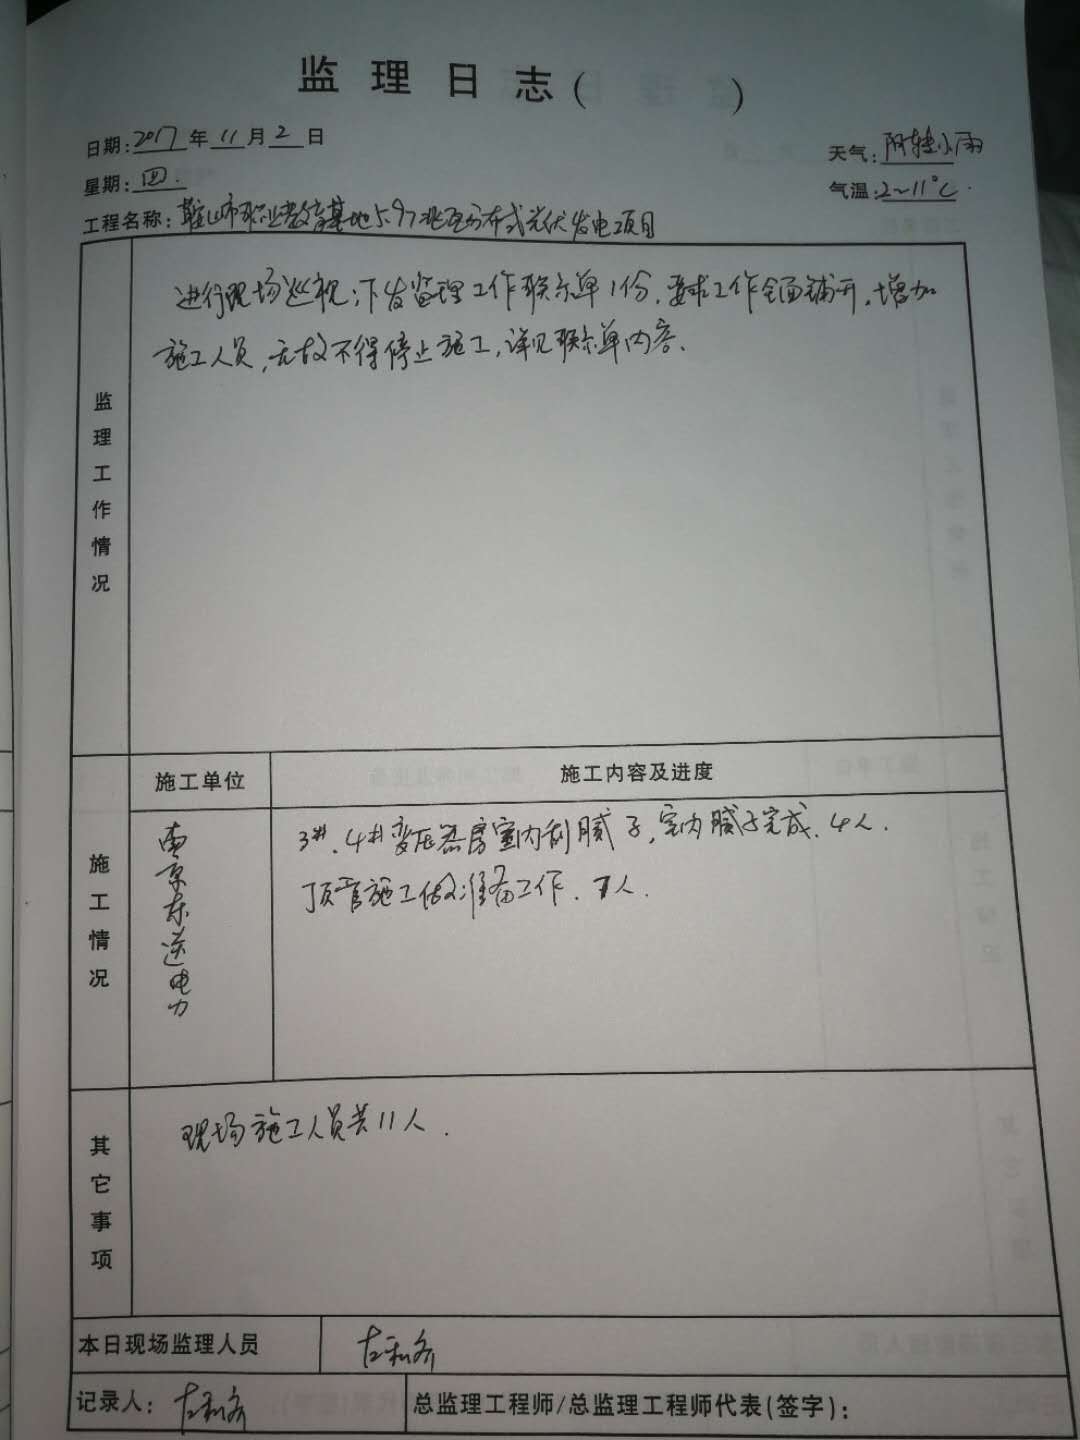 监理日志(　　　　)
日期:2017年11月2日
天气:阴转小雨
星期:四.
气温:2~11℃.
工程名称:鞍山市职业教育基地5.97兆瓦分布式光伏发电项目
监理工作情况
进行现场巡视;下发监理工作联系单1份,要求工作全面铺开,增加
施工人员,无故不得停止施工,详见联系单内容.
施工情况
施工单位
施工内容及进度
南京东送电力
3#、4#变压器房室内刮腻子,室内腻子完成.4人.
顶管施工做准备工作.7人.
其它事项
现场施工人员共11人.
本日现场监理人员
记录人:
总监理工程师/总监理工程师代表(签字):